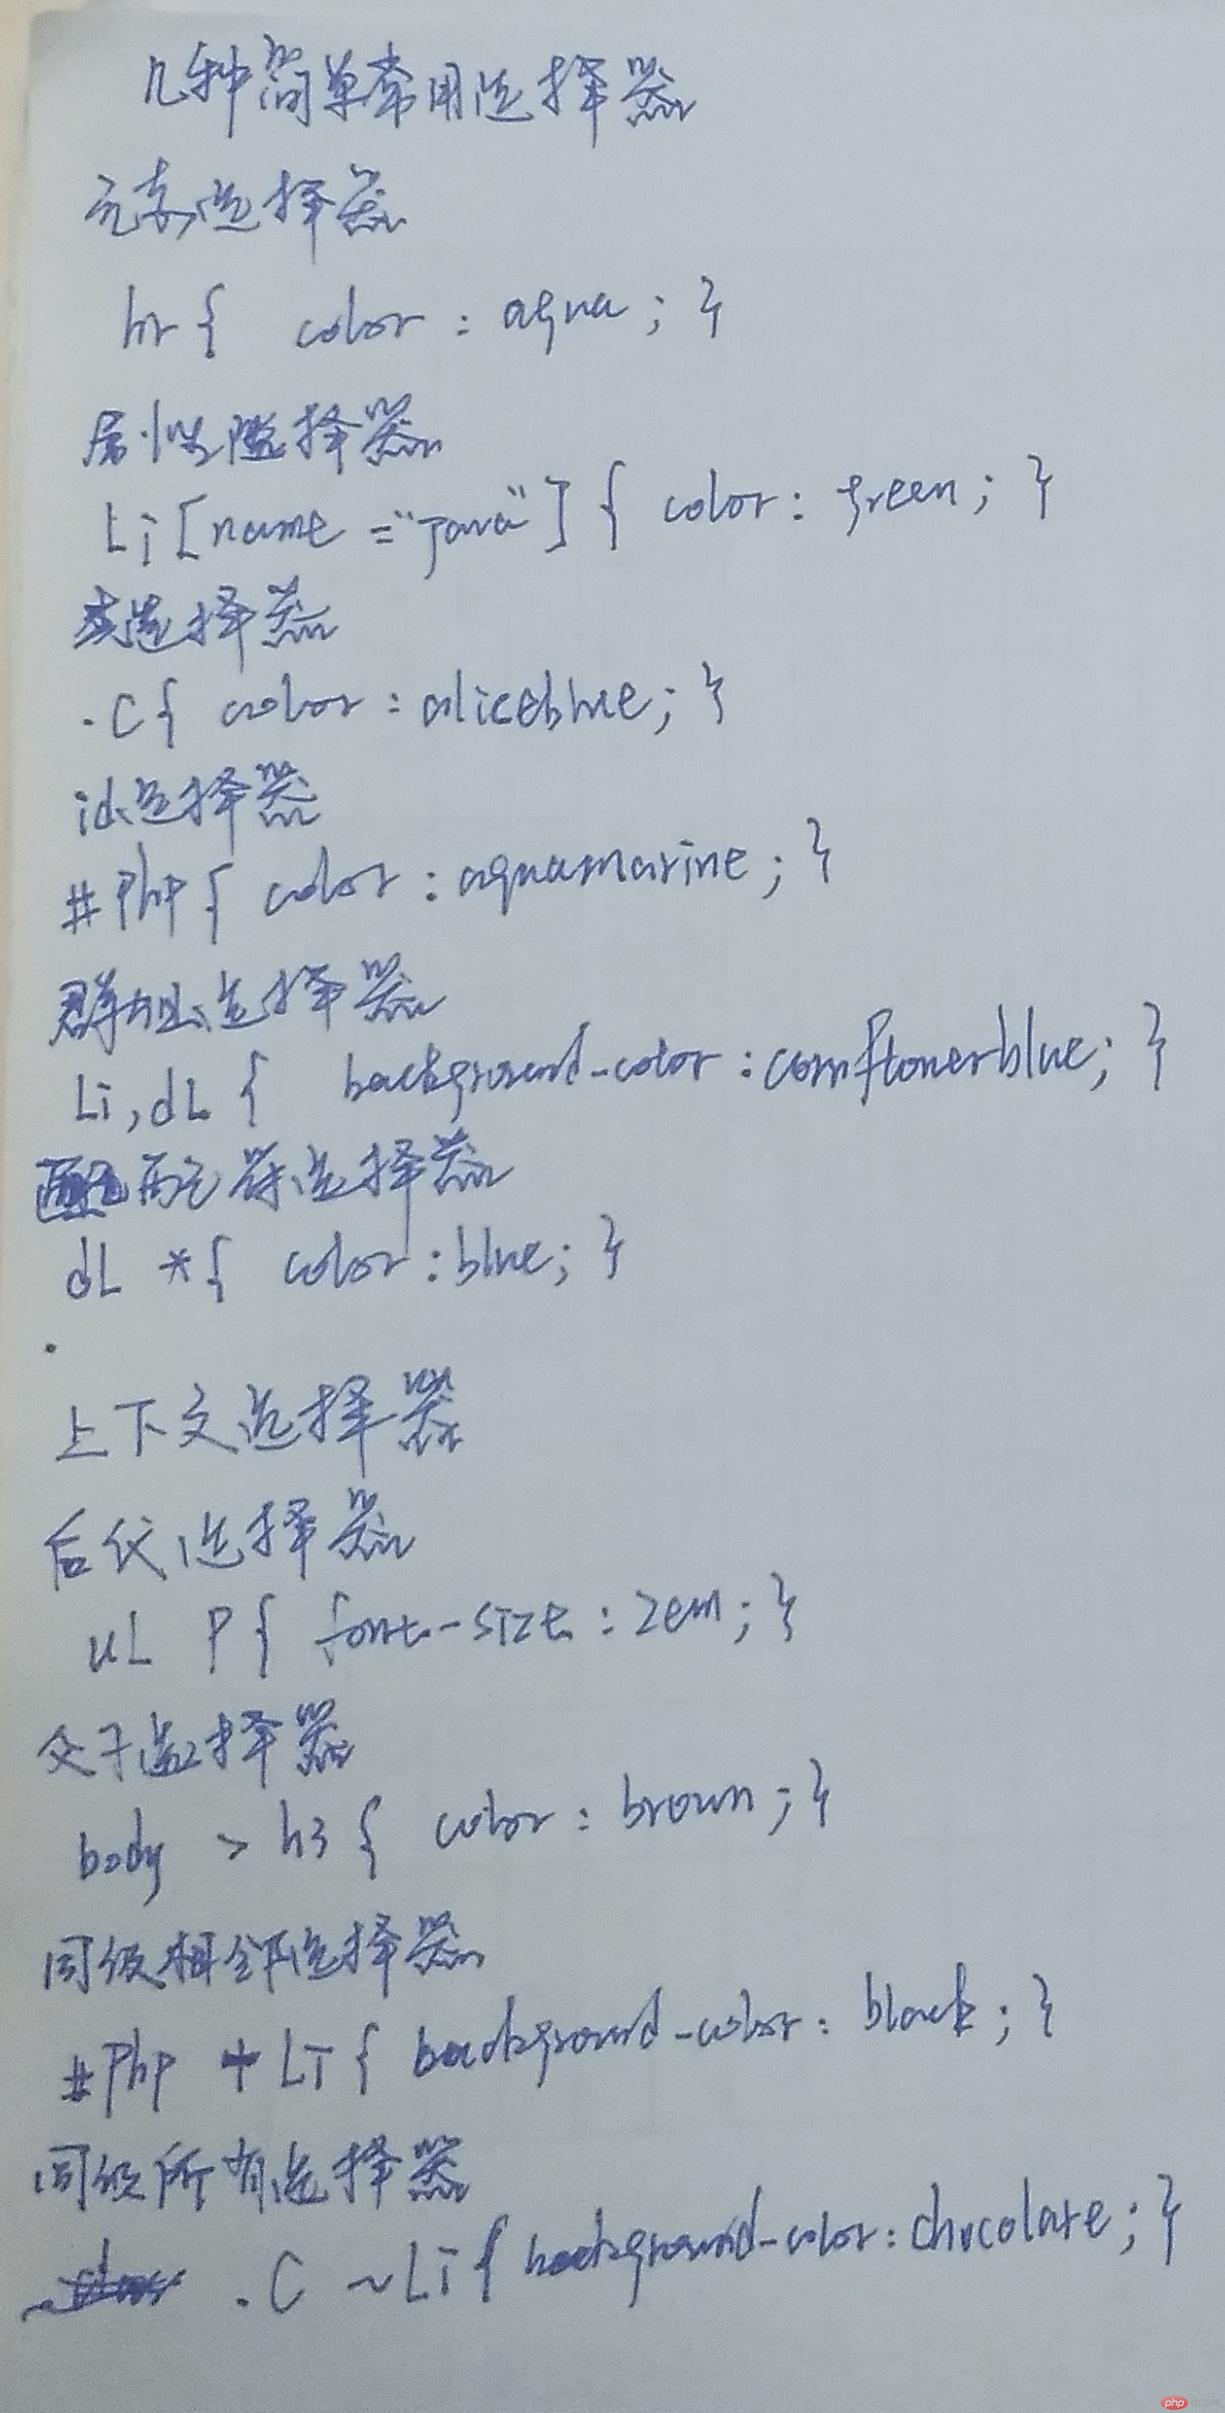 几种简单常用选择器
元素选择器
hr { color : aqua ; }
属性选择器
Li [name ="java"] { color : green ; }
类选择器
.C { color : aliceblue ; }
id选择器
#PhP { color : aquamarine ; }
群组选择器
Li , dL { background-color : cornflowerblue ; }
配符选择器
dL * { color : blue ; }
上下文选择器
后代选择器
uL P { font-size : 2em ; }
父子选择器
body > h3 { color : brown ; }
同级相邻选择器
#PhP + Li { background-color : black ; }
同级所有选择器
.C ~ Li { background-color : chocolate ; }
php